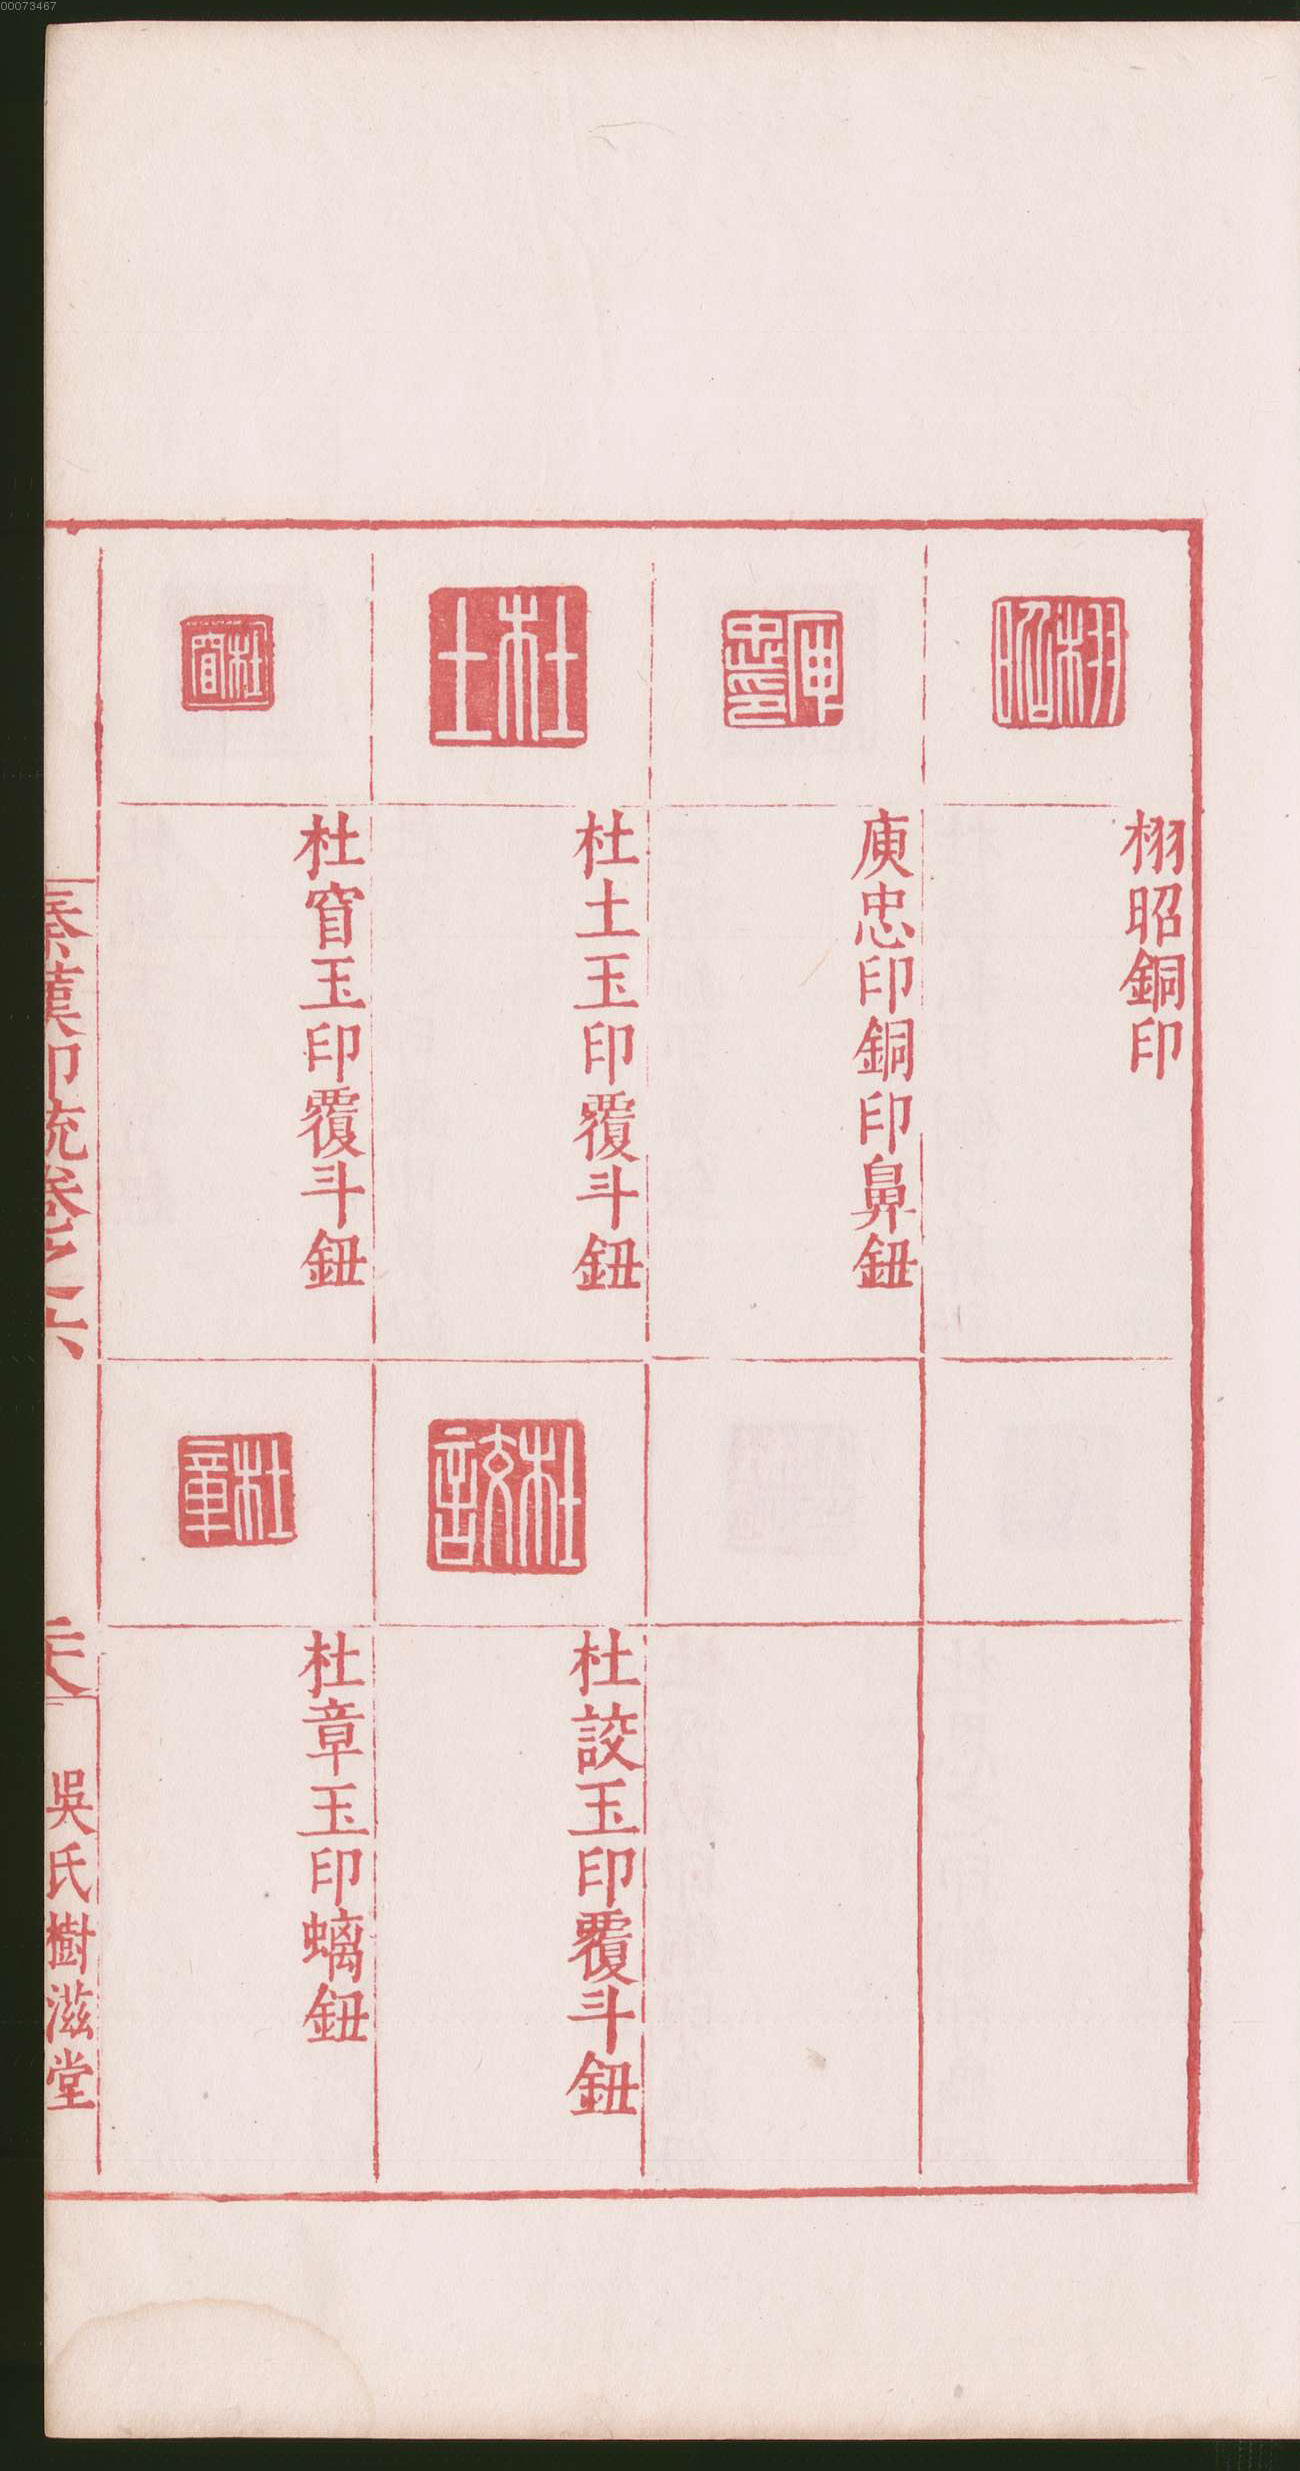 栩昭銅印
庾忠印銅印鼻鈕
杜土玉印覆斗鈕
杜䆞玉印覆斗鈕
杜詨玉印覆斗鈕
杜章玉印螭鈕
秦漢印統卷之六
吳氏樹滋堂
00073467